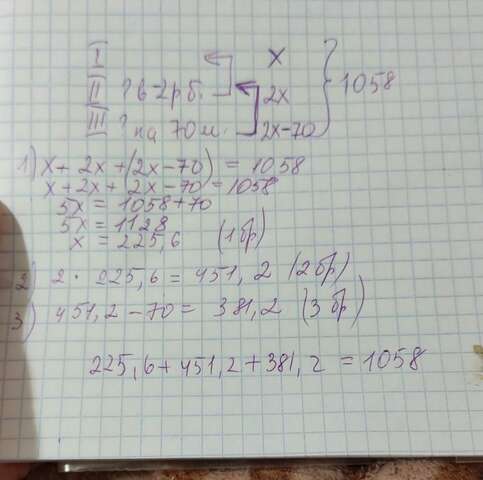 I x
II ? в 2р б. 2x } 1058
III ? на 70 м. 2x-70
1) x + 2x + (2x - 70) = 1058
x + 2x + 2x - 70 = 1058
5x = 1058 + 70
5x = 1128
x = 225,6 (1 бр)
2) 2 · 225,6 = 451,2 (2 бр)
3) 451,2 - 70 = 381,2 (3 бр)
225,6 + 451,2 + 381,2 = 1058